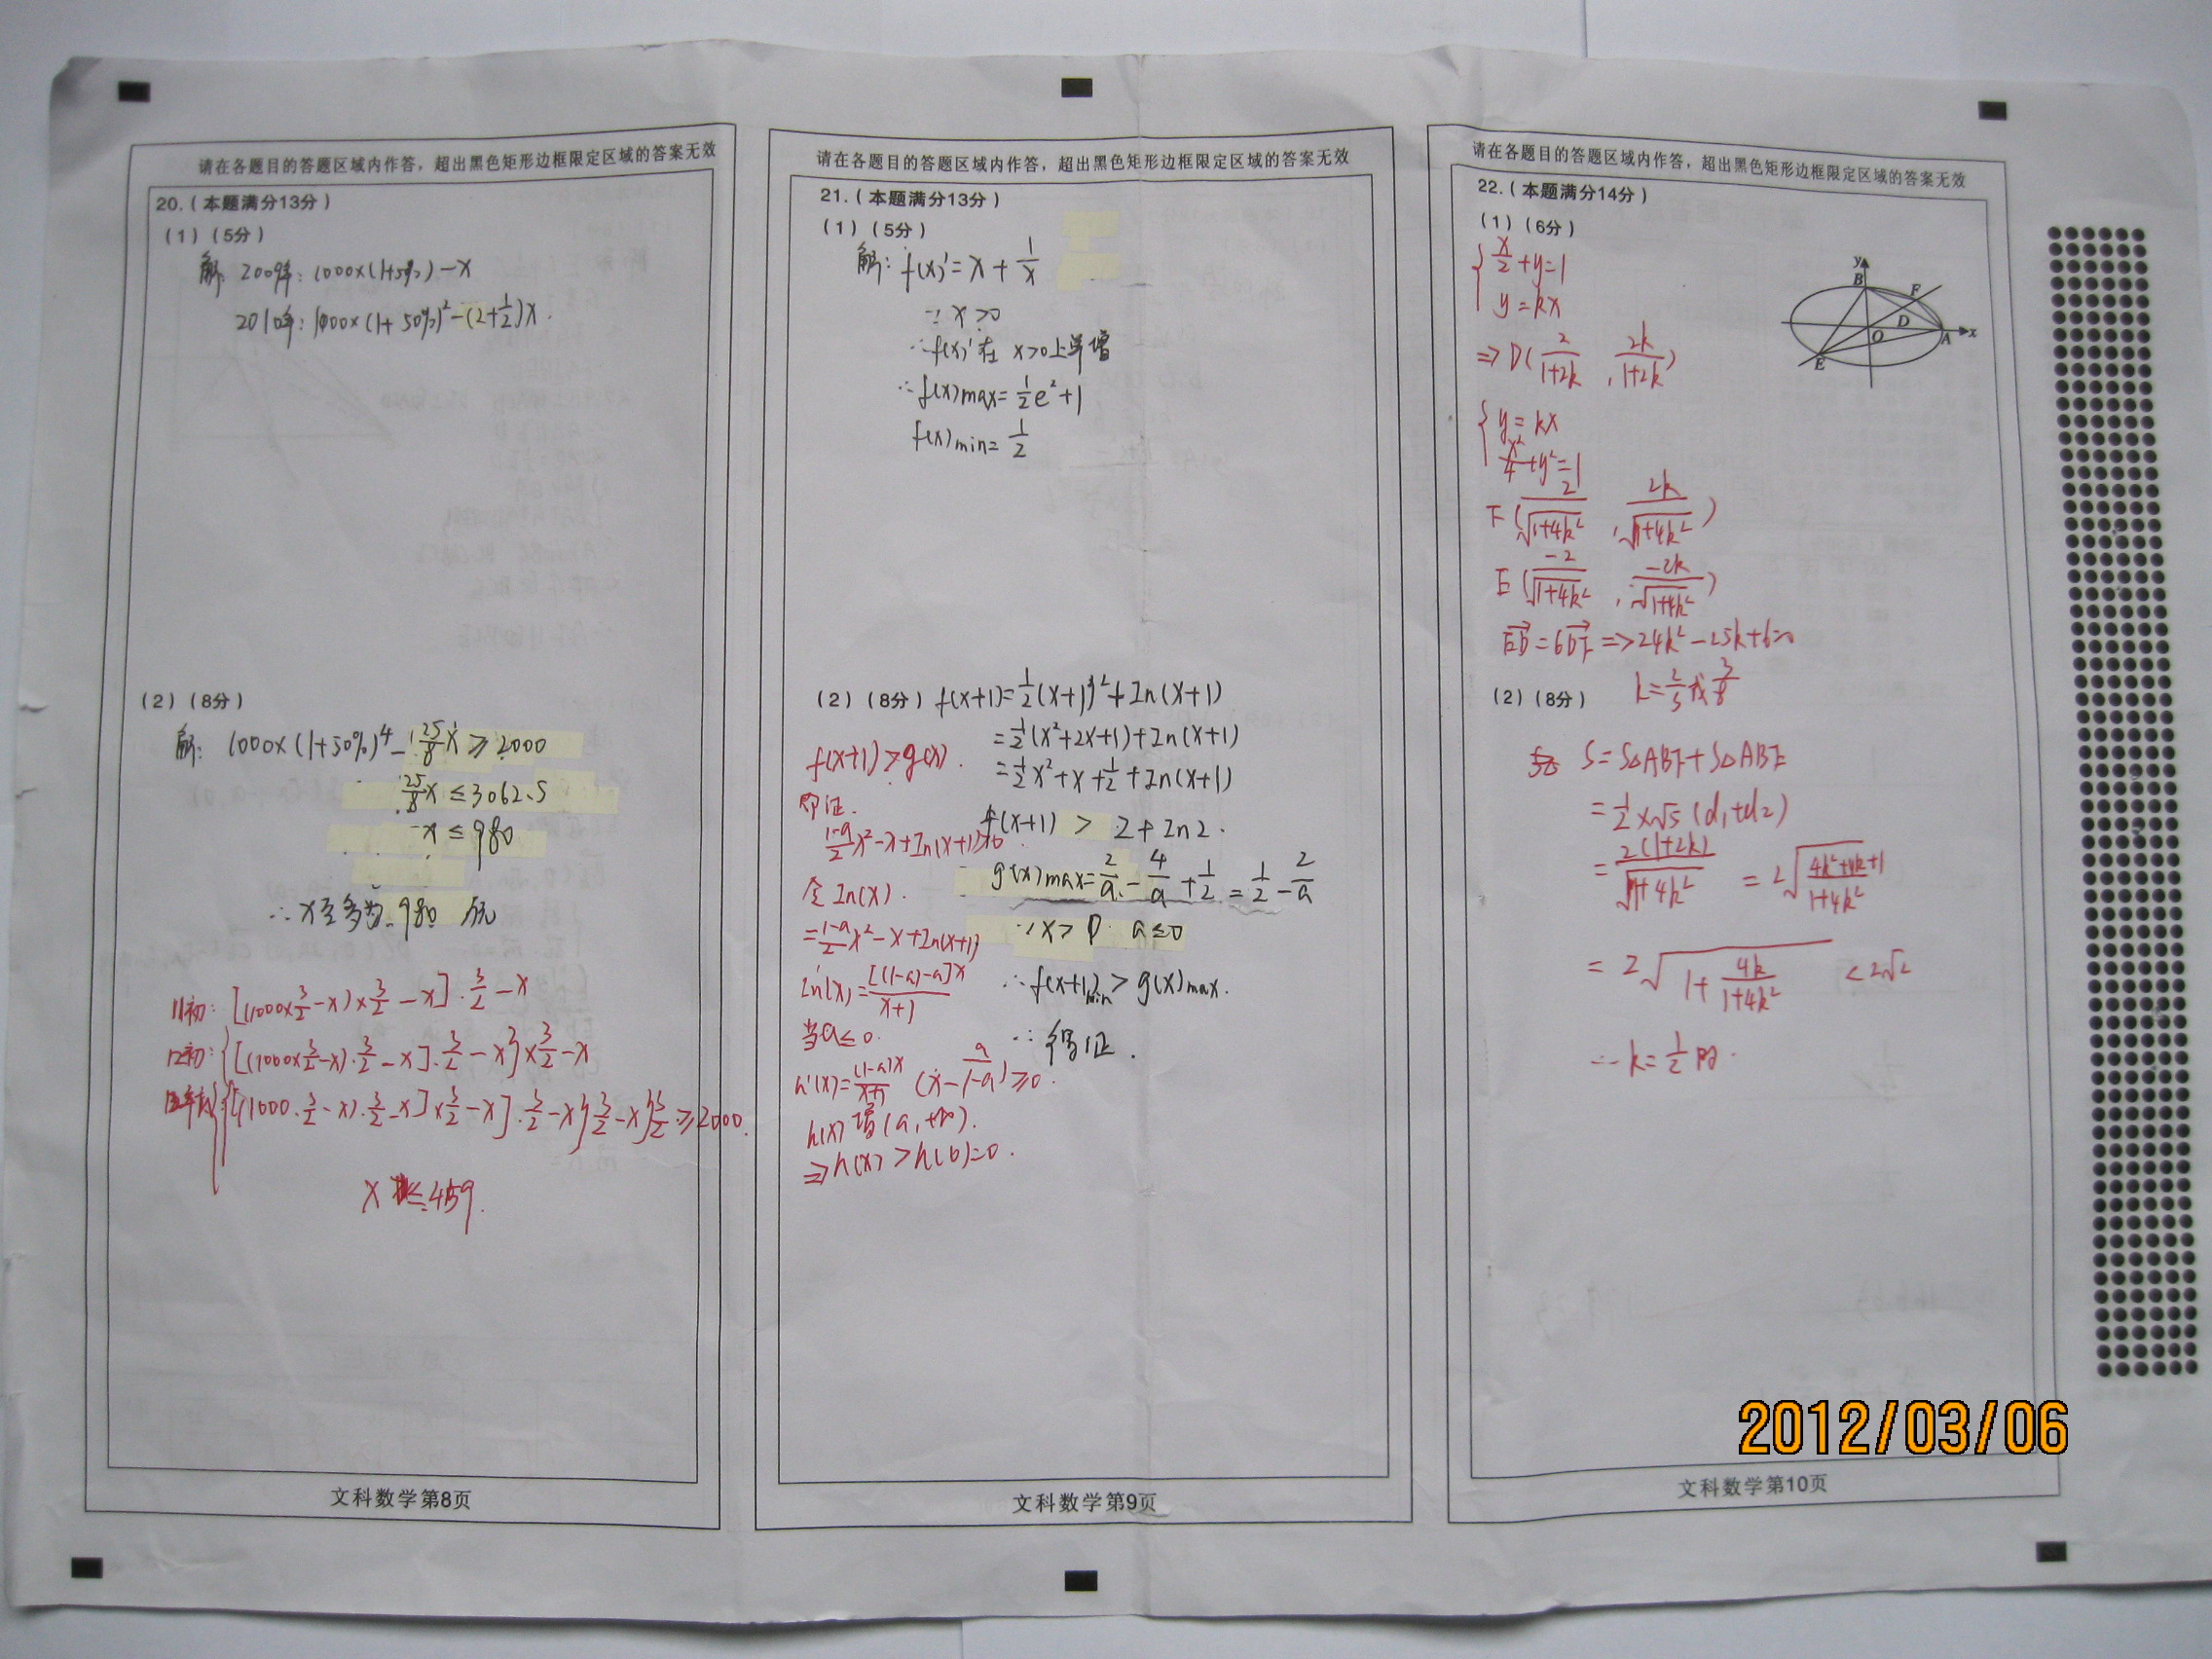 请在各题目的答题区域内作答，超出黑色矩形边框限定区域的答案无效
20.（本题满分13分）
（1）（5分）
解: 2009年: 1000×(1+50%)-x
2010年: 1000×(1+50%)²-(2+1/2)x.
（2）（8分）
解: 1000×(1+50%)⁴-125/8x≥2000
125/8x≤3062.5
x≤980
∴x至多为980万元
11初: [(1000×3/2-x)×3/2-x]·3/2-x
12初: {[(1000×3/2-x)·3/2-x]·3/2-x}×3/2-x
{{[(1000·3/2-x)·3/2-x]×3/2-x]·3/2-x}3/2-x}3/2≥2000.
x≤459.
文科数学第8页
请在各题目的答题区域内作答，超出黑色矩形边框限定区域的答案无效
21.（本题满分13分）
（1）（5分）
解: f(x)'=x+1/x
∵x>0
∴f(x)'在 x>0上单增
∴f(x)max=1/2e²+1
f(x)min=1/2
（2）（8分） f(x+1)=1/2(x+1)²+ln(x+1)
=1/2(x²+2x+1)+ln(x+1)
=1/2x²+x+1/2+ln(x+1)
f(x+1) > 2+ln2.
g(x)max=2/a-4/a+1/2=1/2-2/a
∵x>0. a≤0
∴f(x+1)min>g(x)max.
∴得证.
f(x+1)>g(x).
即证.
1-a/2x²-x+ln(x+1)>0
令 ln(x).
=1-a/2x²-x+ln(x+1)
ln'(x)=[(1-a)-a]x/x+1
当a≤0.
h'(x)=(1-a)x/x+1(x-a/1-a)≥0.
h(x)增(a,+∞).
⇒h(x)>h(0)=0.
文科数学第9页
请在各题目的答题区域内作答，超出黑色矩形边框限定区域的答案无效
22.（本题满分14分）
（1）（6分）
{x/2+y=1
y=kx
⇒D(2/1+2k, 2k/1+2k)
{y=kx
x²/4+y²=1
F(2/√1+4k², 2k/√1+4k²)
E(-2/√1+4k², -2k/√1+4k²)
ED=6DF⇒24k²-25k+6=0
k=2/3或3/8
y
B
F
D
O
A
x
E
（2）（8分）
S=S△ABF+S△ABE
=1/2×√5(d₁+d₂)
=2(1+2k)/√1+4k²=2√4k²+4k+1/1+4k²
=2√1+4k/1+4k² <2√2
∴k=1/2时.
文科数学第10页
2012/03/06